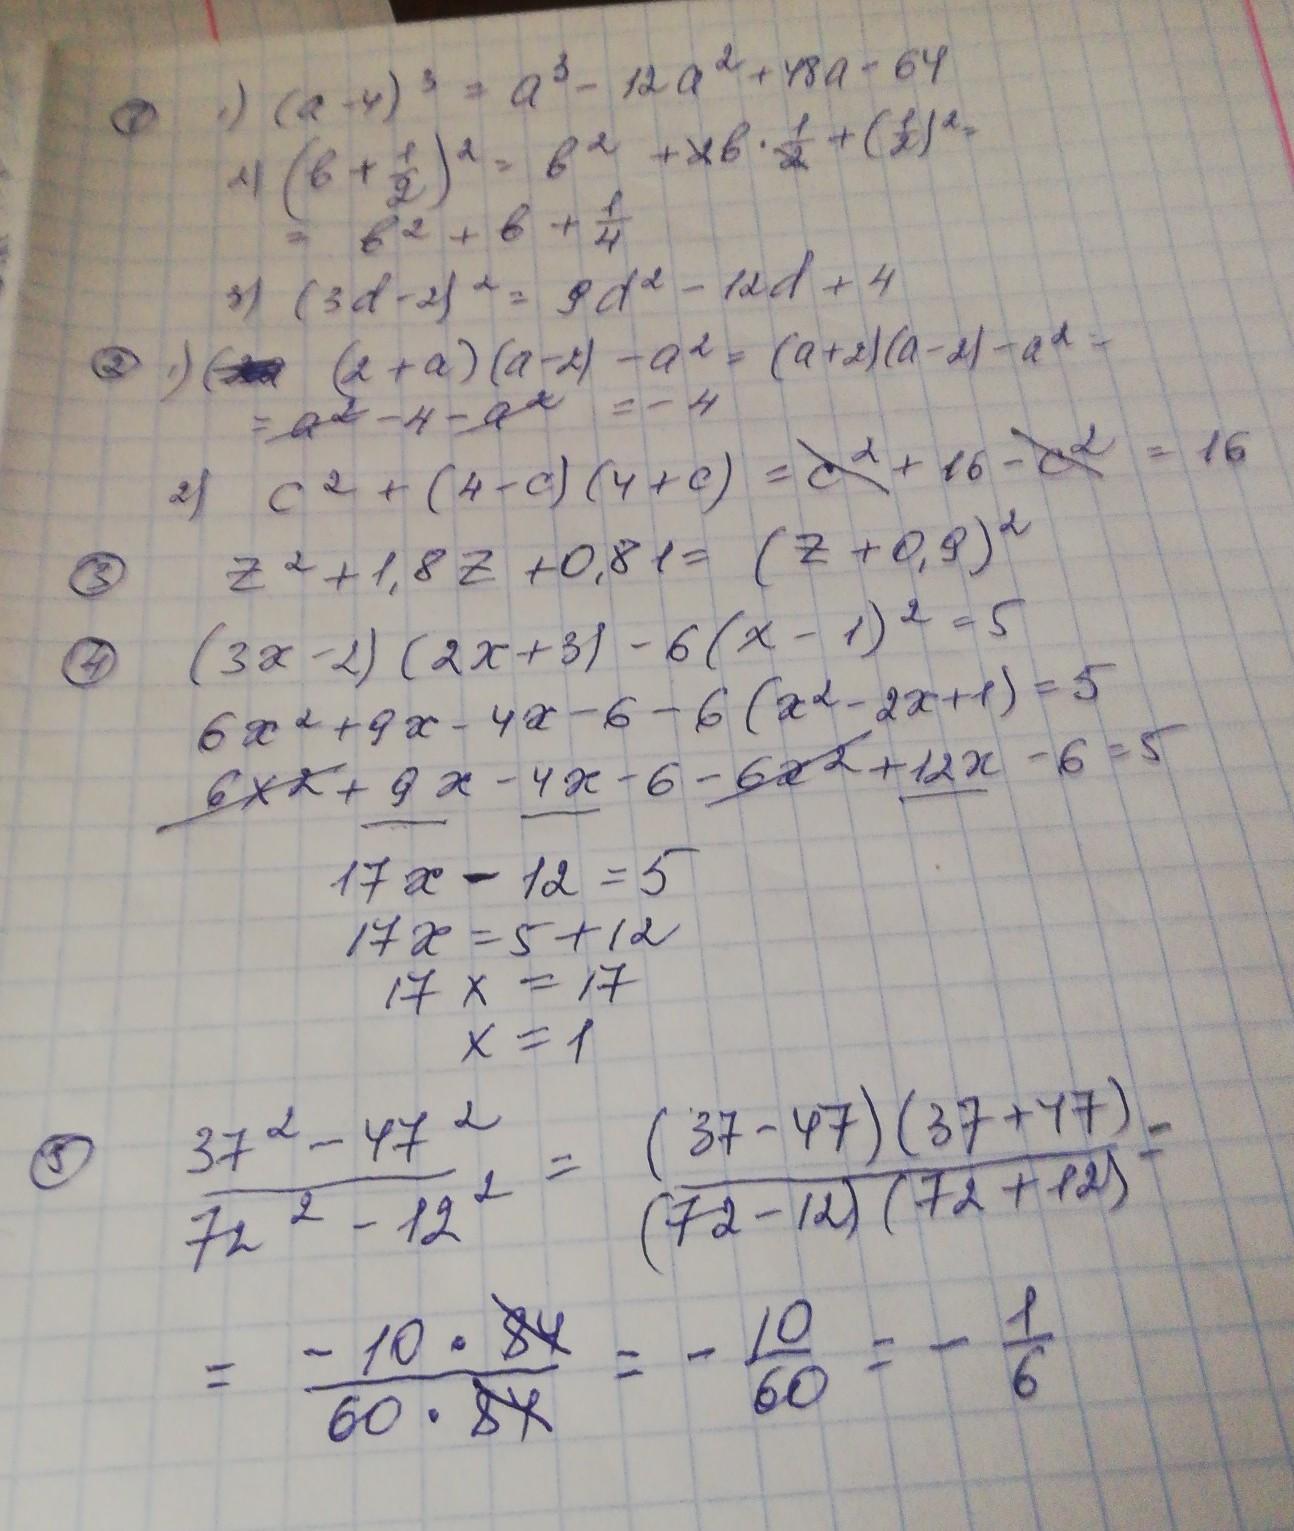 ① 1) (a-4)³ = a³ - 12a² + 48a - 64
2) (в + 1/2)² = в² + 2в · 1/2 + (1/2)² =
= в² + в + 1/4
3) (3d-2)² = 9d² - 12d + 4
② 1) (2+a)(a-2) - a² = (a+2)(a-2) - a² =
= a² - 4 - a² = -4
2) c² + (4-c)(4+c) = c² + 16 - c² = 16
③ z² + 1,8z + 0,81 = (z + 0,9)²
④ (3x-2)(2x+3) - 6(x-1)² = 5
6x² + 9x - 4x - 6 - 6(x² - 2x + 1) = 5
6x² + 9x - 4x - 6 - 6x² + 12x - 6 = 5
17x - 12 = 5
17x = 5 + 12
17x = 17
x = 1
⑤ (37² - 47²)/(72² - 12²) = ((37-47)(37+47))/((72-12)(72+12)) =
= (-10 · 84)/(60 · 84) = - 10/60 = - 1/6